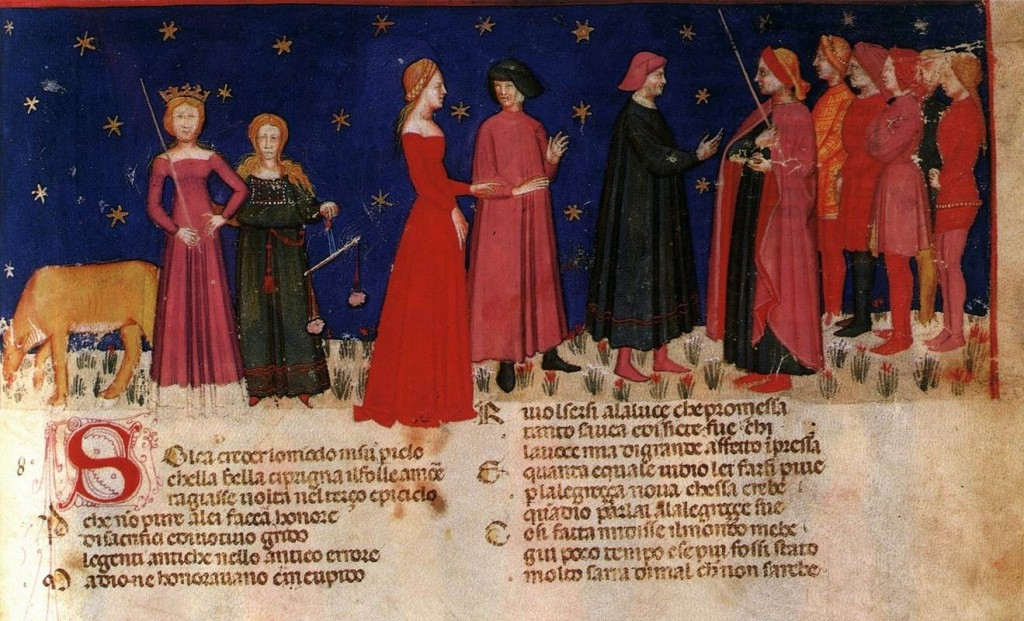 8.
Solea creder lo mōdo in su piclo
chella bella ciprigna il folle amore
ragiasse volta nel terço epiciclo
che nō pure alei facea honore
di sacrifici e di votivo grido
le genti antiche nello antico errore
Ma dione honoravano e in cupido
Rivolsersi ala luce che promessa
tanto savea et di siete fue chi
la voce mia di grande affetto ipressa
E quanta e quale vidio lei farsi piue
p la legreça nova chessa crebe
quadio parlai ala legreçe sue
Cosi fatta mi disse il mondo mebe
giu poco tempo e se piu fossi stato
molto saria di mal ch non sarebe